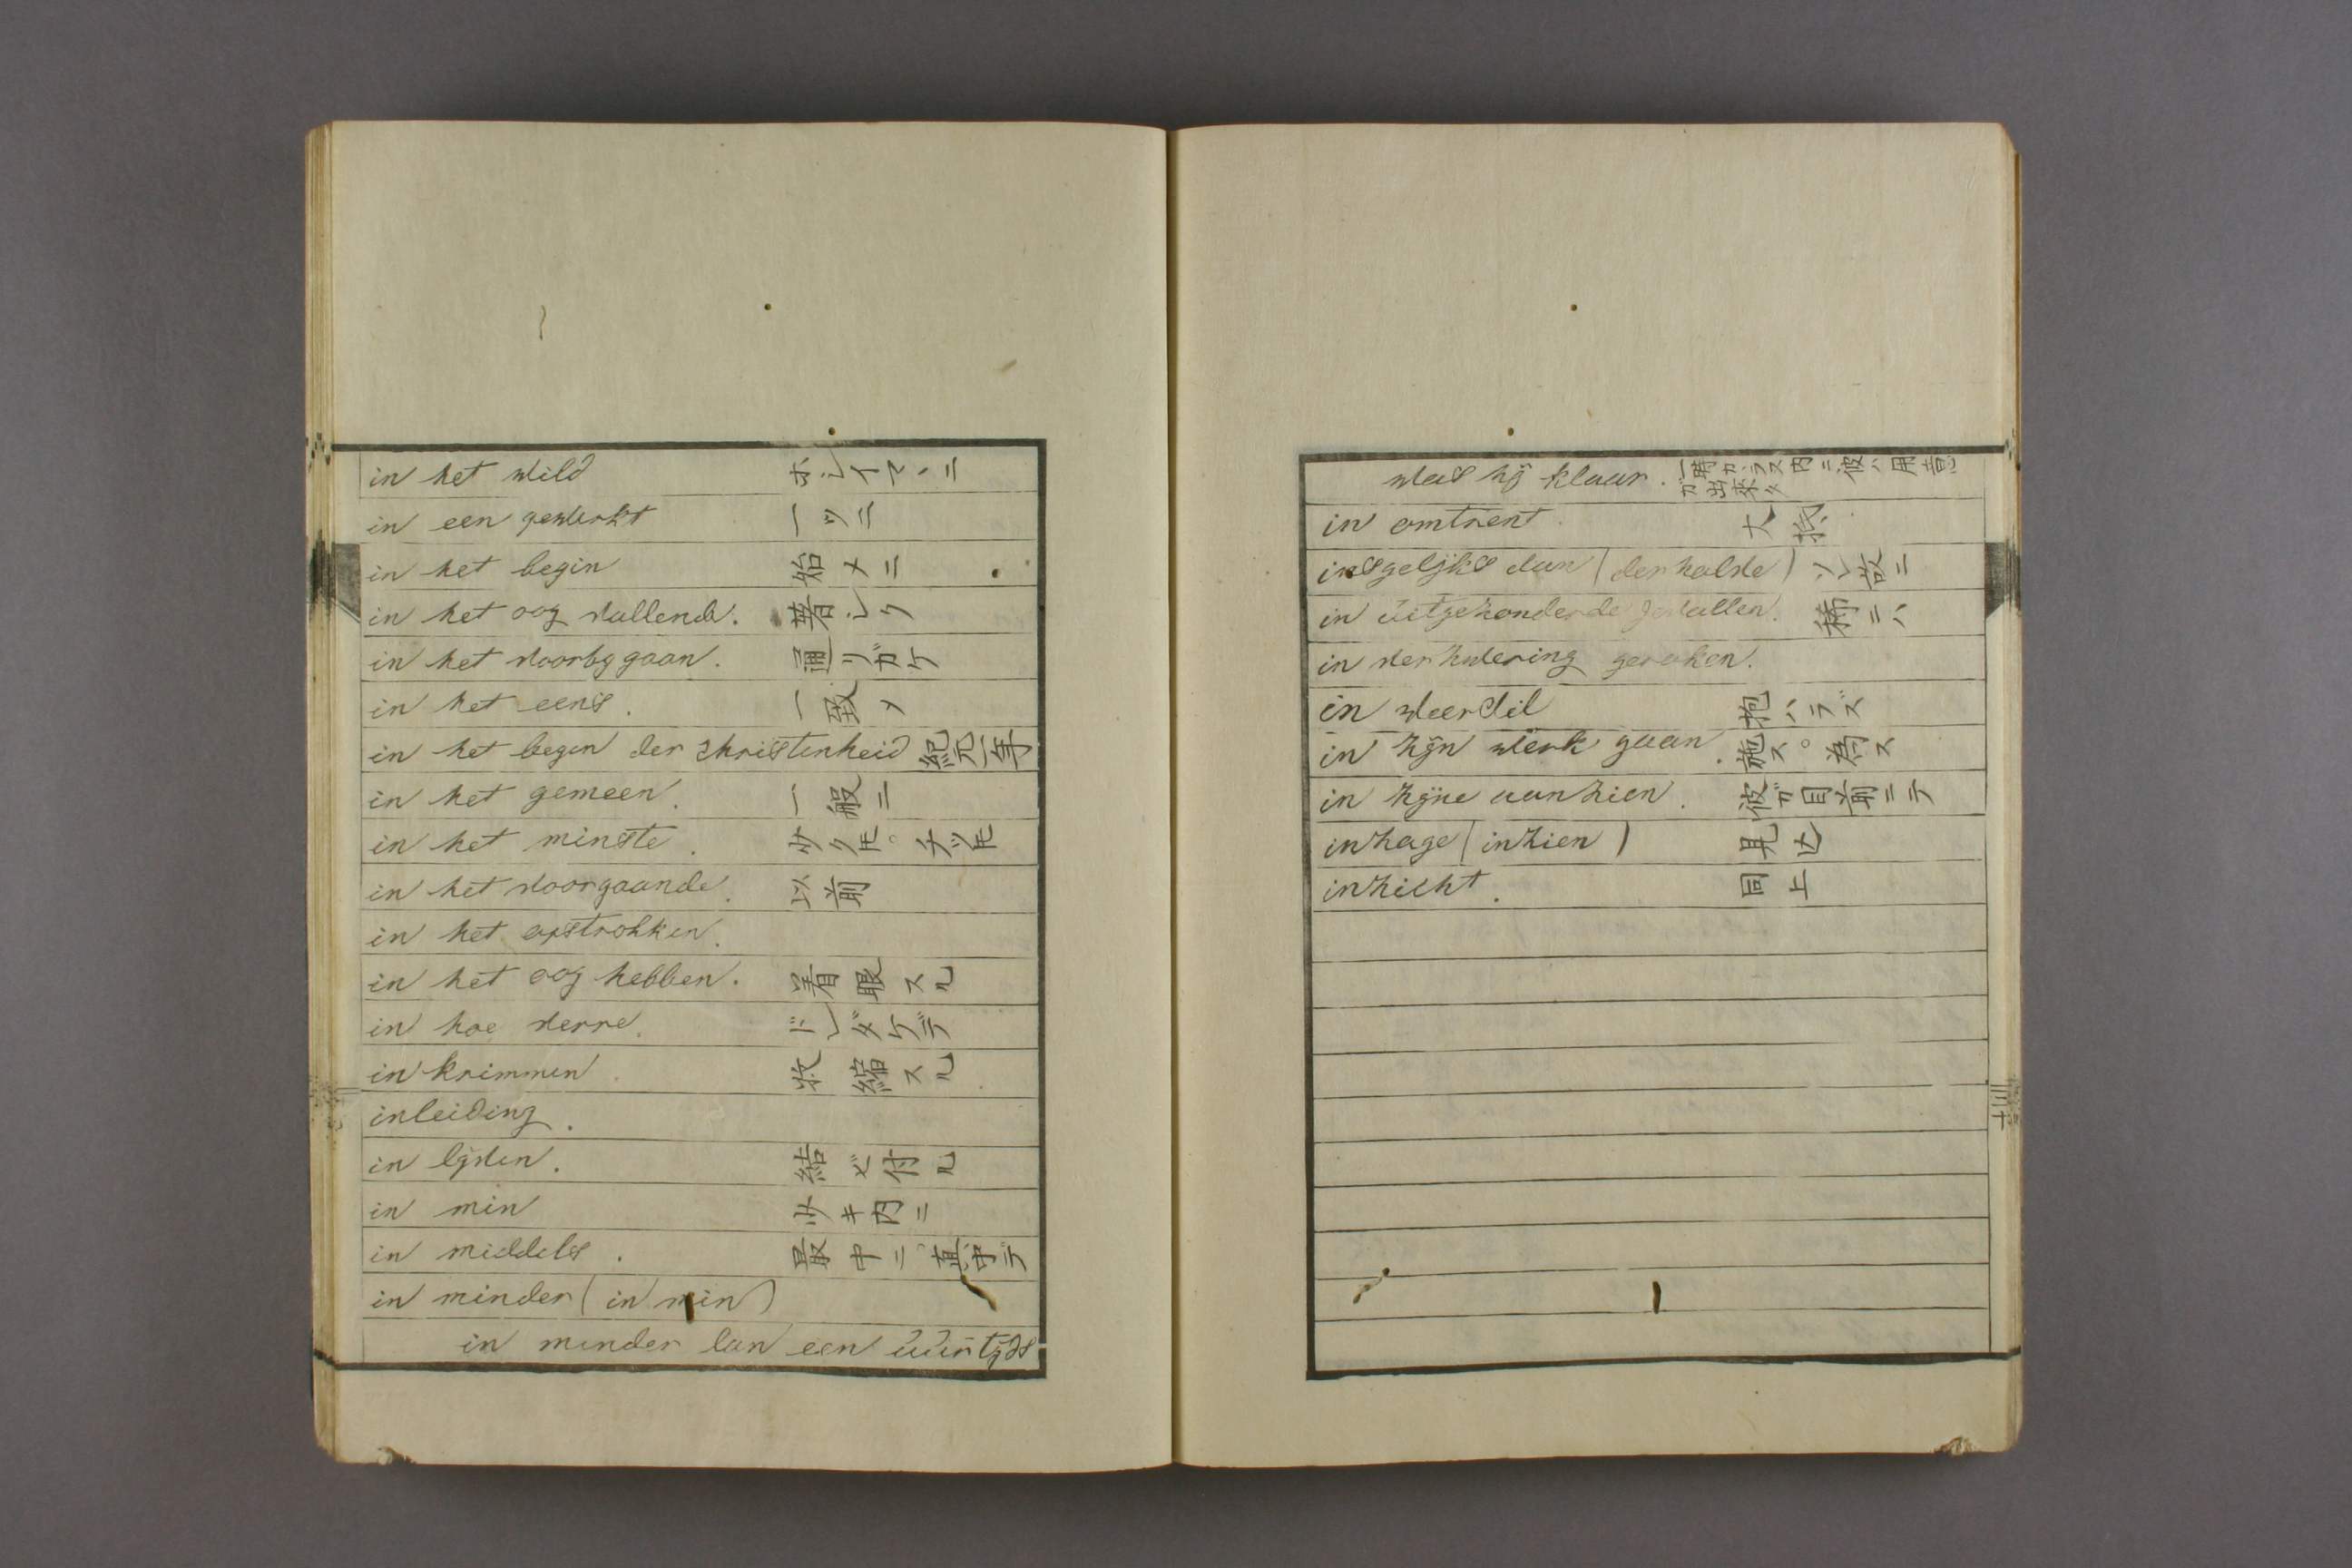 in het wild ホシイマヽニ
in een gewerkt 一ツニ
in het begin 始メニ
in het oog vallende. 著シク
in het voorbygaan. 通リガケ
in het eens. 一致メ
in het begin der christenheid 紀元一年
in het gemeen. 一般ニ
in het minste. 少クモ。チツモ
in het voorgaande. 以前
in het
in het oog hebben. 着眼スル
in hoe verre. ドレダケデ
inkrimmen. 收縮スル
inleiding.
in lyven. 結ビ付ル
in min 少キ内ニ
in middels. 最中ニ、真中デ
in minder (in min)
in minder lan een uur tyds
was hy klaar. 一時カヽラヌ内ニ彼ハ用意ガ出来タ
in omtrent. 大抵
insgelyks dan (derhalve) ソレ故ニ
in uitgezonderde gevallen. 稀ニハ
in geraken.
in weerdil 抱ハラズ
in zyn werk gaan. 施ス。為ス
in zyne aanzien. 彼ガ目前ニテ
inzage (inzien) 見込
inzicht. 同上
三十